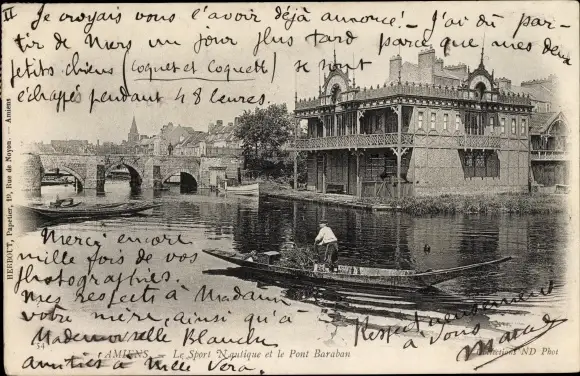 II Je croyais vous l'avoir déjà annoncé! - J'ai dû par-
tir de Mers un jour plus tard parce que mes deux
petits chiens (Coquet et Coquett) se sont
échappés pendant 48 heures
HERBOUT, Papetier, 19, Rue de Noyon. — Amiens
Merci encore
mille fois de vos
photographies.
Mes respects à Madame
votre mère, ainsi qu'à
Mademoiselle Blanche
Amitiés à Mlle Vera.
Respectueusement
à vous
54 AMIENS. — Le Sport Nautique et le Pont Baraban
Collections ND Phot